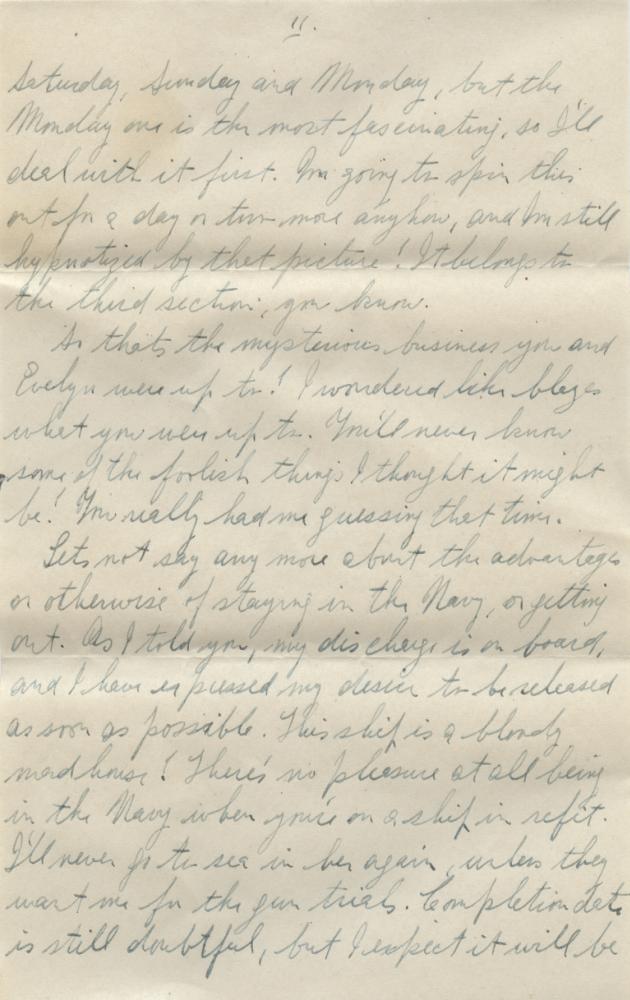 11.
Saturday, Sunday and Monday, but the
Monday one is the most fascinating, so I'll
deal with it first. I'm going to spin this
out for a day or two more anyhow, and I'm still
hypnotized by that picture! It belongs to
the third section, you know.
So that's the mysterious business you and
Evelyn were up to! I wondered like blazes
what you were up to. You'll never know
some of the foolish things I thought it might
be! You really had me guessing that time.
Lets not say any more about the advantages
or otherwise of staying in the Navy, or getting
out. As I told you, my discharge is on board,
and I have expressed my desire to be released
as soon as possible. This ship is a bloody
madhouse! There's no pleasure at all being
in the Navy when you're on a ship in refit.
I'll never go to sea in her again, unless they
want me for the gun trials. Completion date
is still doubtful, but I expect it will be